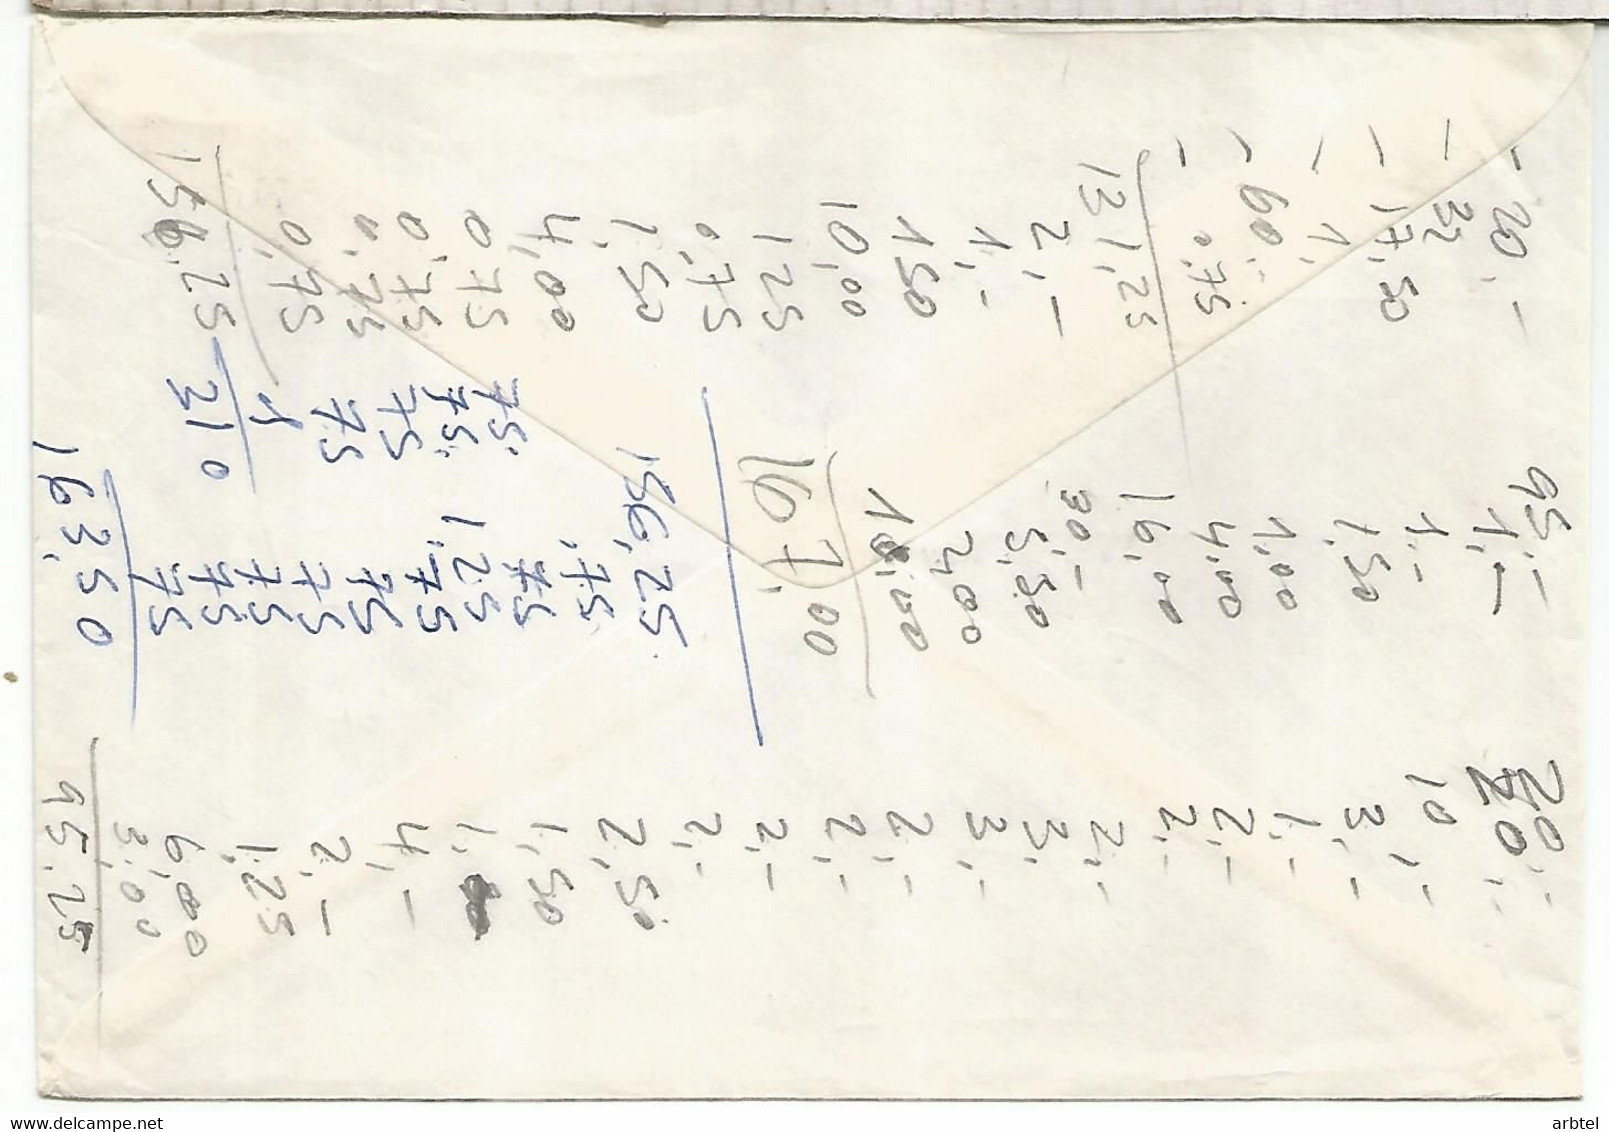 20,-
32
17,50
1,-
60,-
0,75
131,25
2,-
1,-
1,50
10,00
1,25
0,75
1,50
4,00
0,75
0,75
0,75
0,75
156,25
75
75
75
75
1
310
95,-
1,-
1,-
1,50
1,00
4,00
16,00
30,-
5,50
2,00
10,00
167,00
156,25
75
75
1,25
75
75
75
75
75
163,50
20,-
20,-
10,-
3,-
1,-
2,-
2,-
2,-
3,-
3,-
2,-
2,-
2,-
2,-
2,50
1,50
4,-
2,-
1,25
6,00
3,00
95,25
www.delcampe.net
arbtel